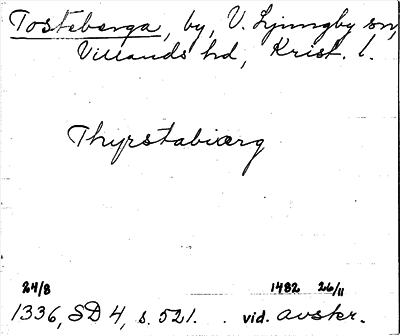 Tosteberga, by, V. Ljungby sn,
Villands hd, Krist. l.
Thyrstabiærg
24/8 1482 26/11
1336, SD 4, s. 521. vid. avskr.